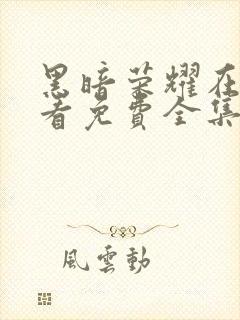 黑暗荣耀在
看免費全集
風雲動